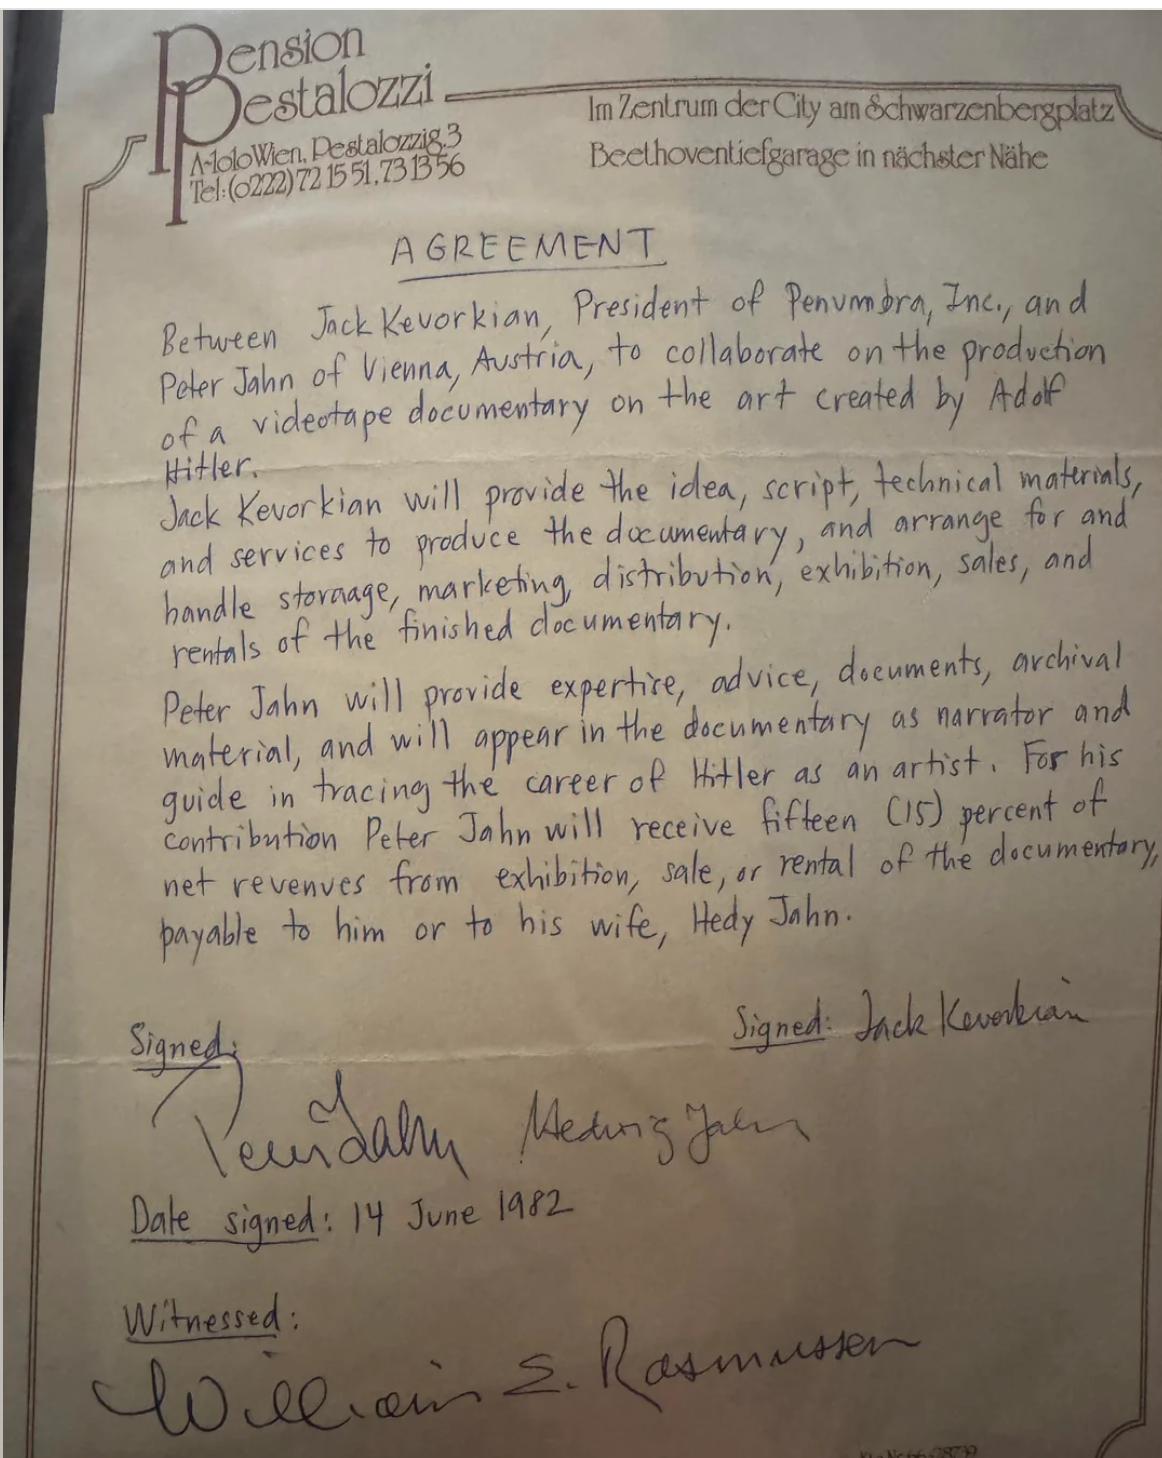 Pension
Pestalozzi
A-1010 Wien, Pestalozzig.3
Tel:(0222) 72 15 51, 73 13 56
Im Zentrum der City am Schwarzenbergplatz
Beethoventiefgarage in nächster Nähe
AGREEMENT
Between Jack Kevorkian, President of Penumbra, Inc., and
Peter Jahn of Vienna, Austria, to collaborate on the production
of a videotape documentary on the art created by Adolf
Hitler.
Jack Kevorkian will provide the idea, script, technical materials,
and services to produce the documentary, and arrange for and
handle storaage, marketing, distribution, exhibition, sales, and
rentals of the finished documentary.
Peter Jahn will provide expertise, advice, documents, archival
material, and will appear in the documentary as narrator and
guide in tracing the career of Hitler as an artist. For his
contribution Peter Jahn will receive fifteen (15) percent of
net revenues from exhibition, sale, or rental of the documentary,
payable to him or to his wife, Hedy Jahn.
Signed: Jack Kevorkian
Signed:
Peter Jahn Hedwig Jahn
Date signed: 14 June 1982
Witnessed:
William E. Rasmussen